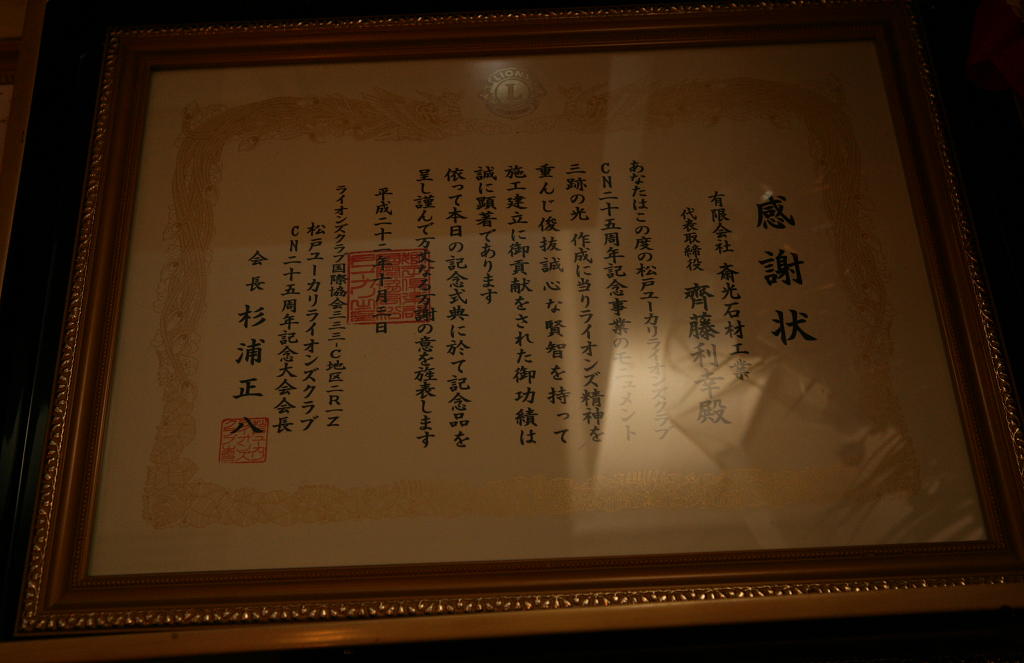 LIONS
L
感謝状
有限会社 斎光石材工業
代表取締役 齊藤利幸殿
あなたはこの度の松戸ユーカリライオンズクラブ
CN二十五周年記念事業のモニュメント
三跡の光 作成に当りライオンズ精神を
重んじ俊抜誠心な賢智を持って
施工建立に御貢献をされた御功績は
誠に顕著であります
依って本日の記念式典に於て記念品を
呈し謹んで万丈なる万謝の意を旌表します
平成二十二年十月三日
ライオンズクラブ国際協会三三三-C地区二R一Z
松戸ユーカリライオンズクラブ
CN二十五周年記念大会会長
会長 杉浦正八